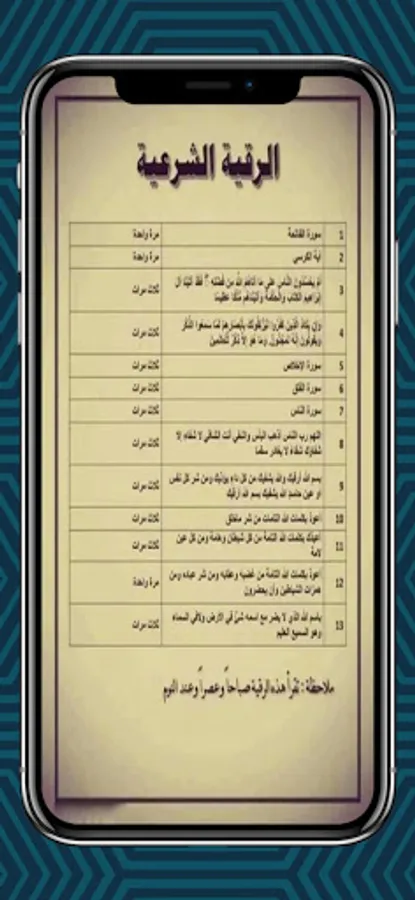 الرقية الشرعية
1 سورة الفاتحة مرة واحدة
2 آية الكرسي مرة واحدة
3 أم يحسدون الناس على ما آتاهم الله من فضله ؟ فقد آتينا آل
إبراهيم الكتاب والحكمة وآتيناهم ملكا عظيما ثلاث مرات
4 وإن يكاد الذين كفروا ليزلقونك بأبصارهم لما سمعوا الذكر
ويقولون إنه لمجنون، وما هو إلا ذكر للعالمين ثلاث مرات
5 سورة الإخلاص ثلاث مرات
6 سورة الفلق ثلاث مرات
7 سورة الناس ثلاث مرات
8 اللهم رب الناس أذهب البأس واشفي أنت الشافي لا شفاء إلا
شفاؤك شفاءً لا يغادر سقما ثلاث مرات
9 بسم الله أرقيك والله يشفيك من كل داء يؤذيك ومن شر كل نفس
أو عين حاسد الله يشفيك بسم الله أرقيك ثلاث مرات
10 أعوذ بكلمات الله التامات من شر ماخلق ثلاث مرات
11 أعيذك بكلمات الله التامة من كل شيطان وهامة ومن كل عين
لامة ثلاث مرات
12 أعوذ بكلمات الله التامة من غضبه وعقابه ومن شر عباده ومن
همزات الشياطين وأن يحضرون مرة واحدة
13 باسم الله الذي لا يضر مع اسمه شئ في الارض ولافي السماء
وهو السميع العليم ثلاث مرات
ملاحظة : تقرأ هذه الرقية صباحاً وعصراً وعند النوم